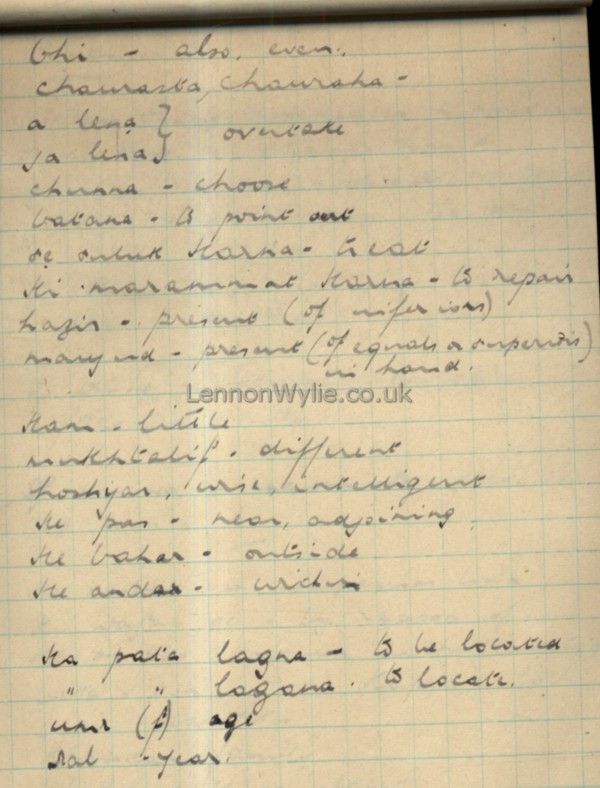 bhi - also, even.
chaurasta, chauraha -
a lena } overtake
ja lena }
chunna - choose
batana - to point out
se suluk karna - treat
ki marammat karna - to repair
hazir - present (of inferiors)
maujud - present (of equals or superiors)
in hand.
LennonWylie.co.uk
kam - little
mukhtalif - different
hoshyar, wise, intelligent
ke pas - near, adjoining
ke bahar - outside
ke andar - within
ka pata lagna - to be located
" " lagana. to locate.
umr (f) age
sal - year.